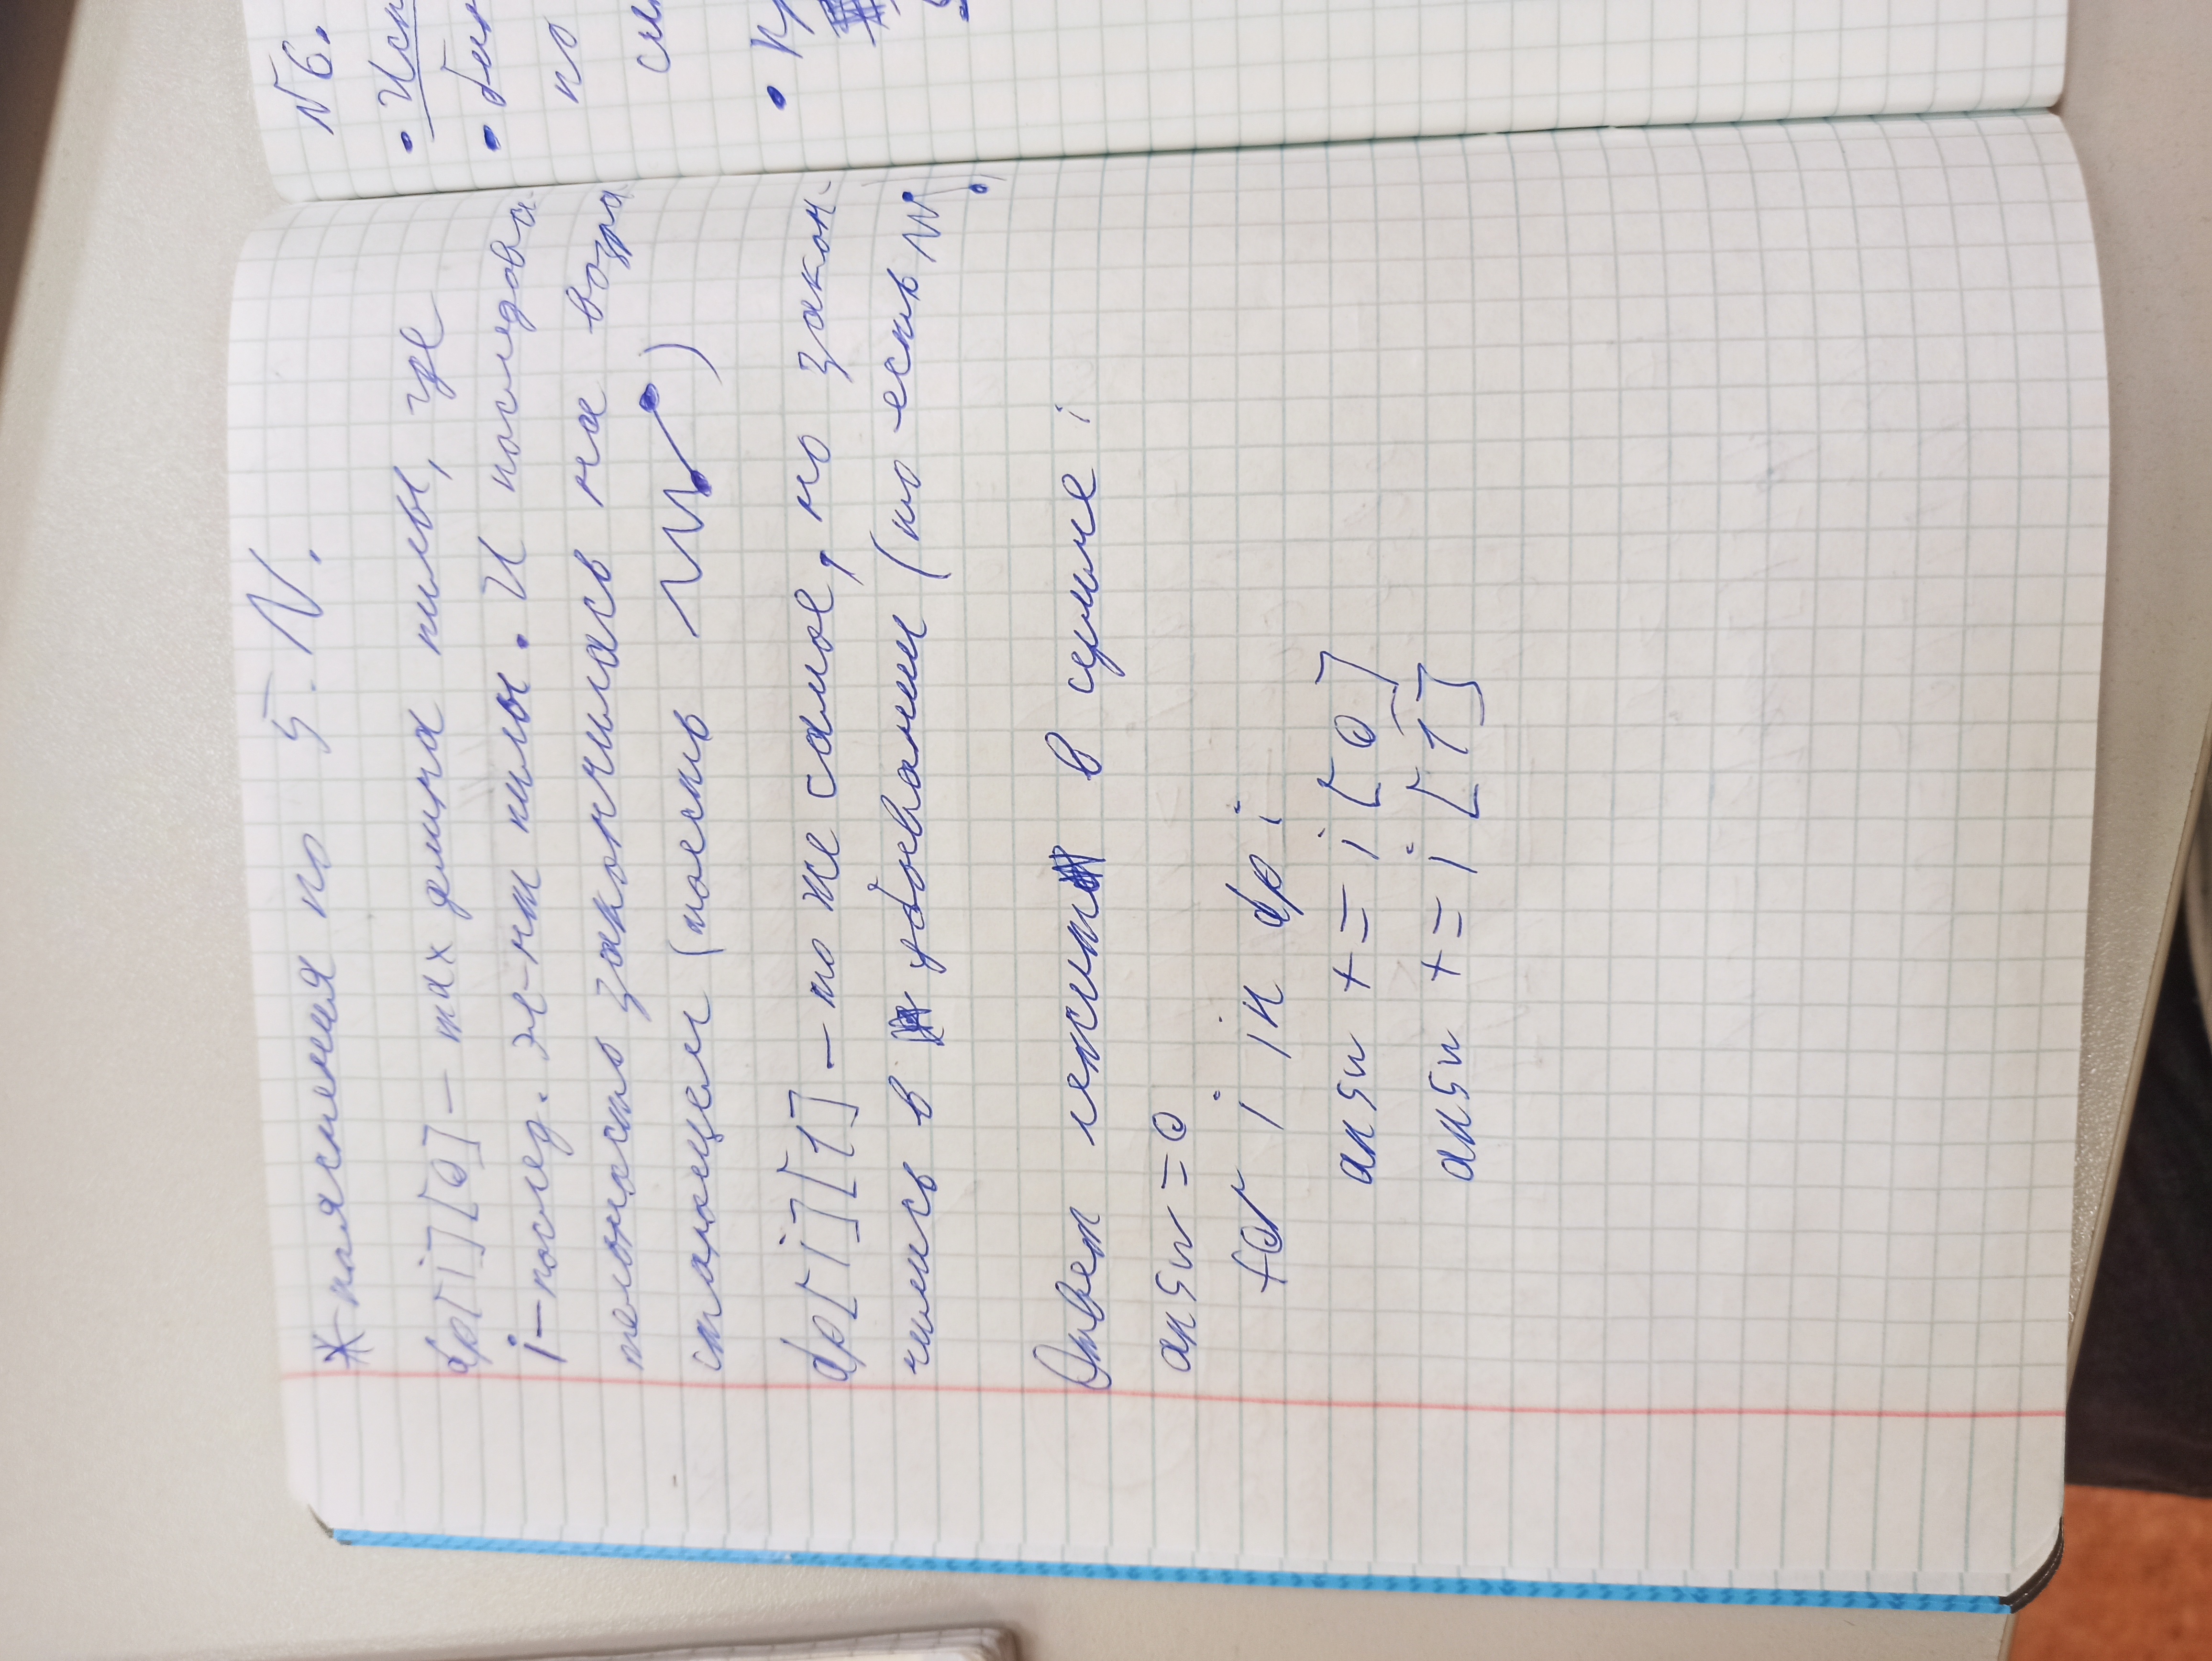 *-пояснения по 5.N.
dp[i][0] – max длина пилы, где
i – послед. эл-нт пилы. И последова-
тельность закончилась на возра
стающем (тоесть )
dp[i][1] – то же самое, но закон-
чились в убывании (то есть )
Ответ лежит в цикле :
answ = 0
for i in dp :
answ += i[0]
answ += i[1]
№6.
• Исп
• бин
по
• Кр